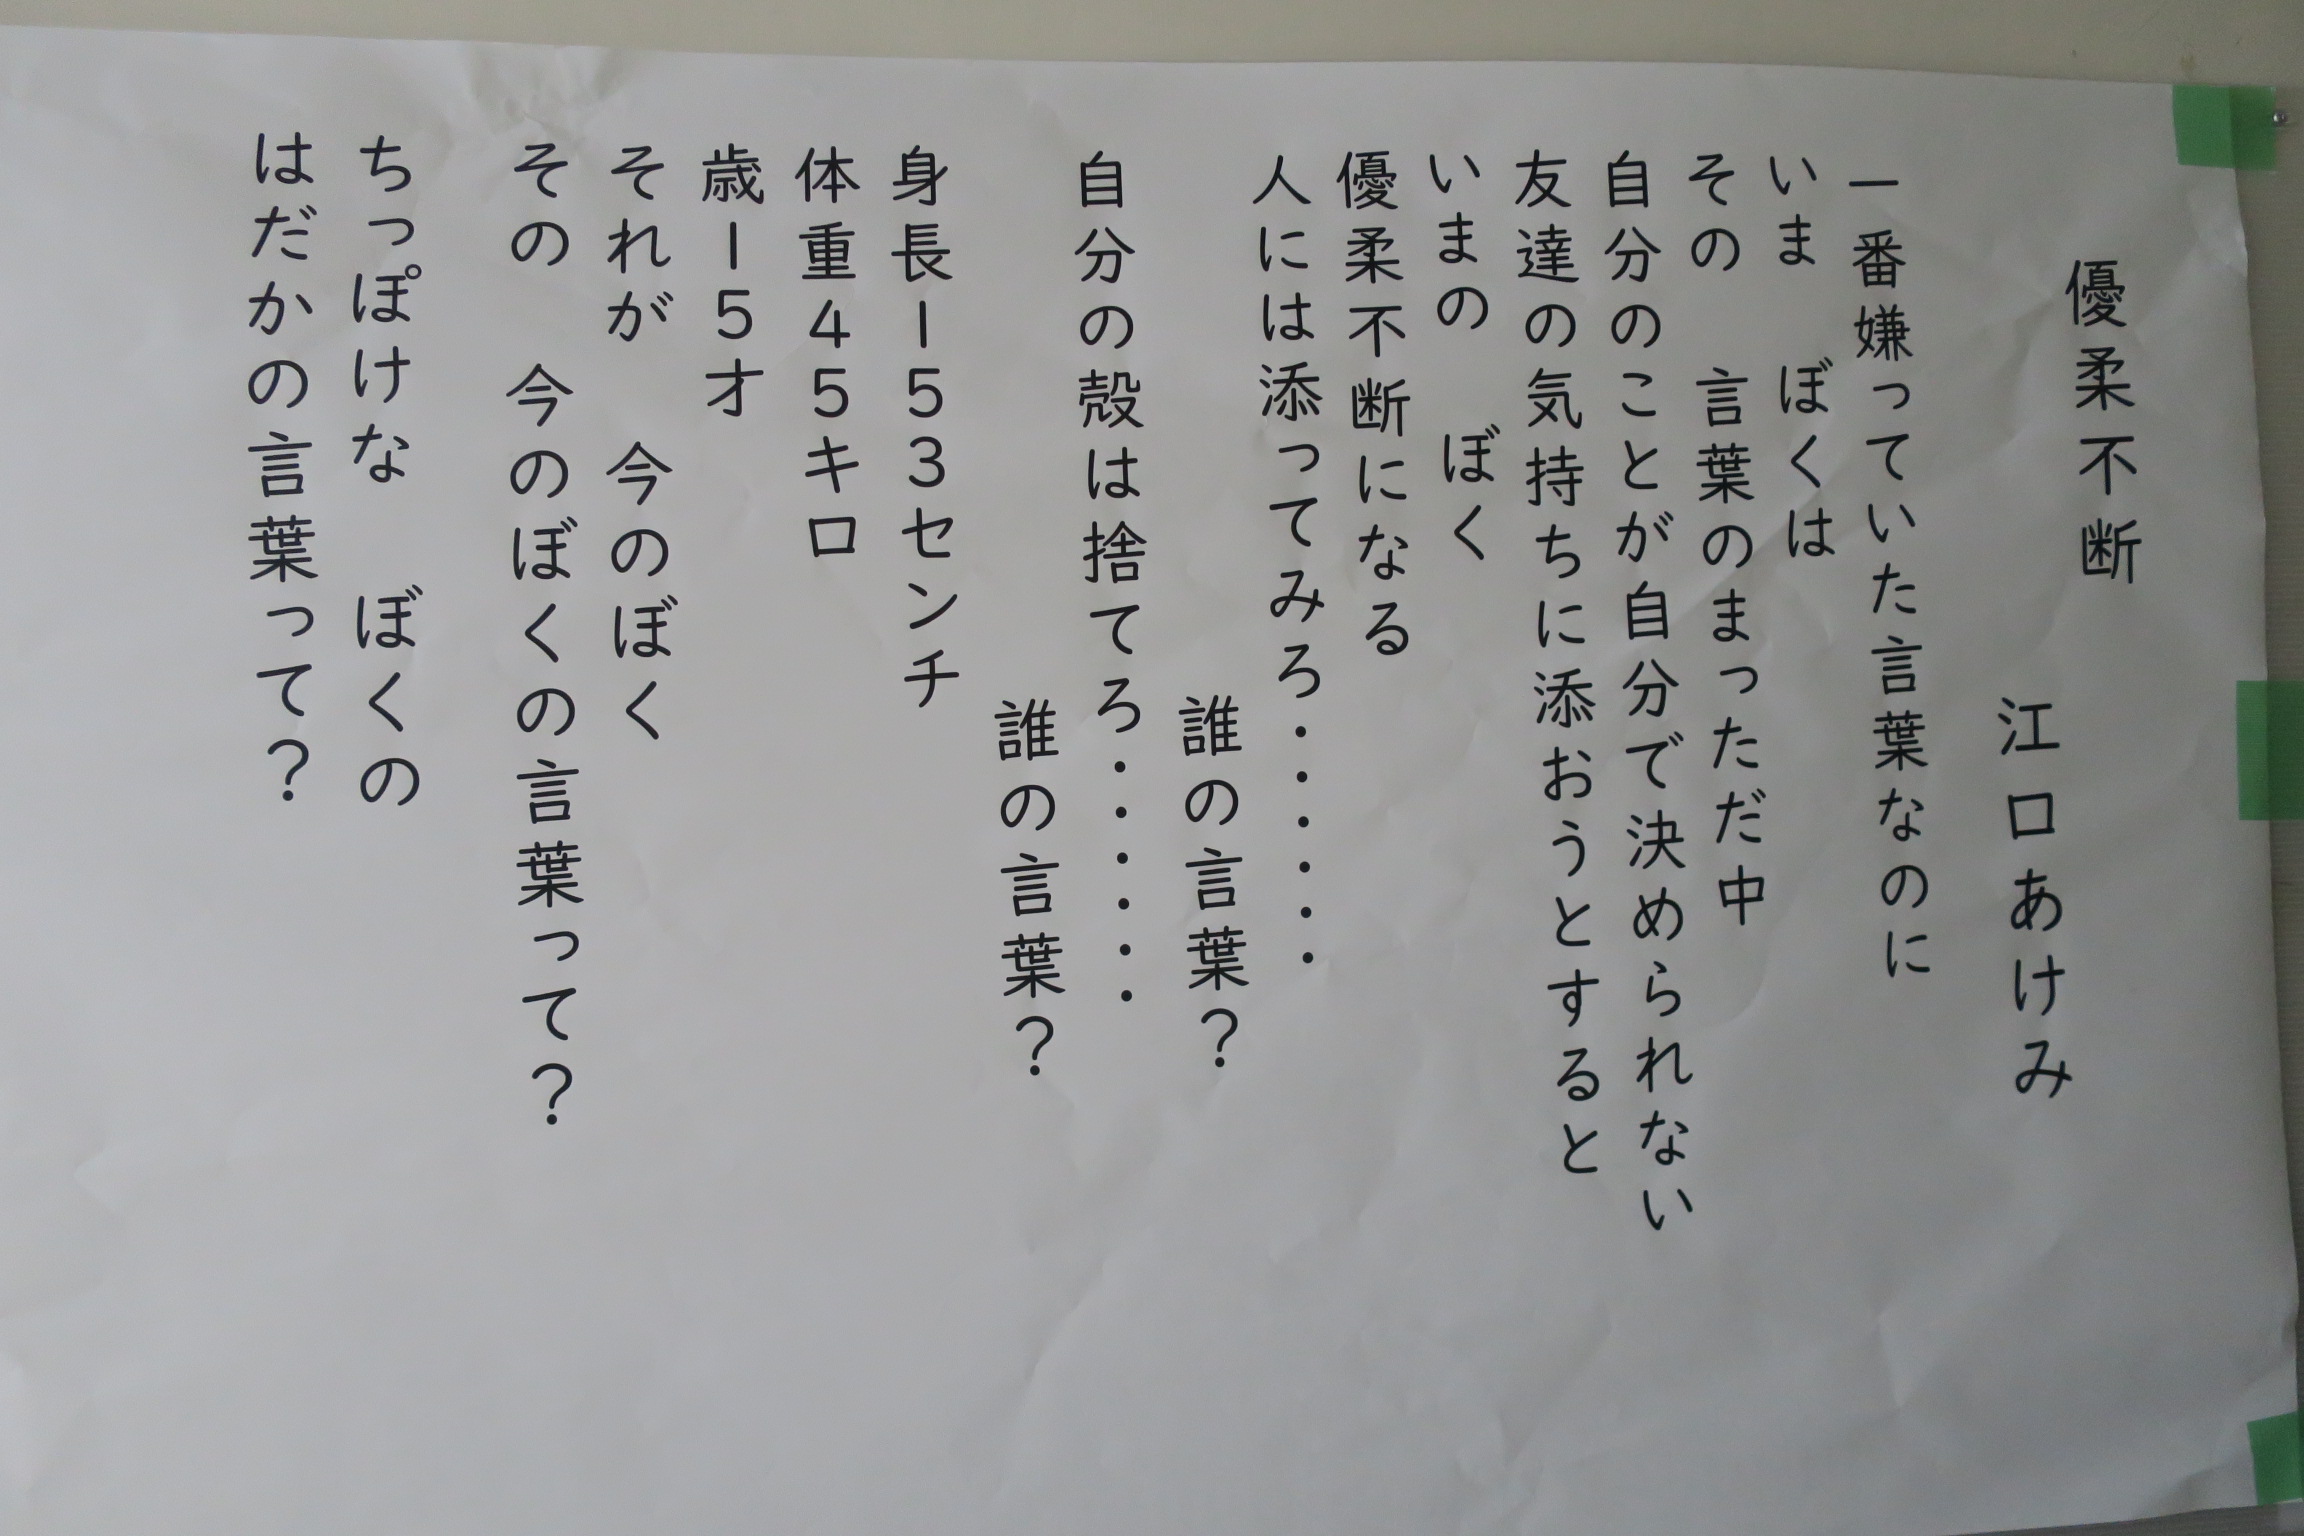 優柔不断
江口あけみ
一番嫌っていた言葉なのに
いま　ぼくは
その　言葉のまっただ中
自分のことが自分で決められない
友達の気持ちに添おうとすると
いまの　ぼく
優柔不断になる
人には添ってみろ・・・・・・
誰の言葉?
自分の殻は捨てろ・・・・・・
誰の言葉?
身長153センチ
体重45キロ
歳15才
それが　今のぼく
その　今のぼくの言葉って?
ちっぽけな　ぼくの
はだかの言葉って?